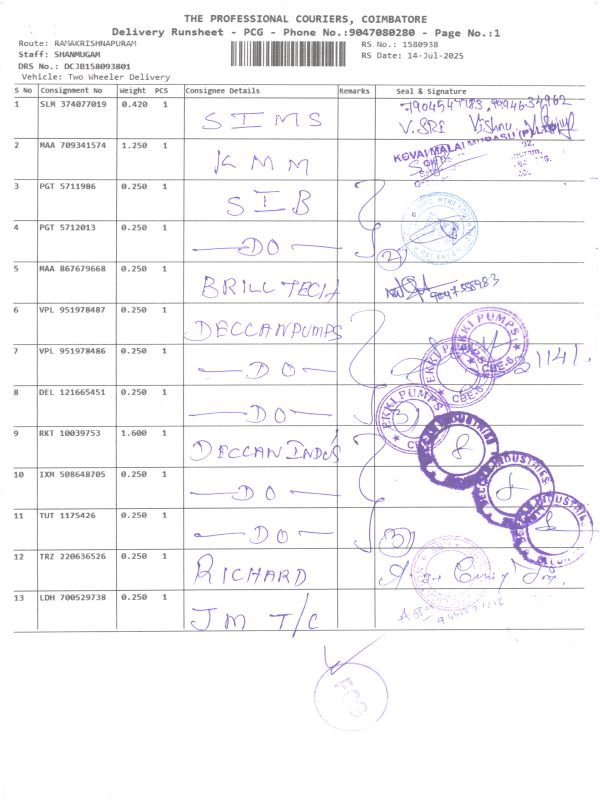 THE PROFESSIONAL COURIERS, COIMBATORE
Delivery Runsheet - PCG - Phone No.:9047080280 - Page No.:1
Route: RAMAKRISHNAPURAM
RS No.: 1580938
Staff: SHANMUGAM
RS Date: 14-Jul-2025
DRS No.: DCJB158093801
Vehicle: Two Wheeler Delivery
S No Consignment No Weight PCS Consignee Details Remarks Seal & Signature
1 SLM 374077019 0.420 1 SIMS
V.SRI Vishnu
2 MAA 709341574 1.250 1 KMM KOVAI MALAI MURASU (P) LTD
3 PGT 5711986 0.250 1 SIB
4 PGT 5712013 0.250 1 —DO— 2
5 MAA 867679668 0.250 1 BRILL TECH
6 VPL 951978487 0.250 1 DECCANPUMPS EKKI PUMPS CBE-6
7 VPL 951978486 0.250 1 —DO— EKKI PUMPS CBE-6 31141.
8 DEL 121665451 0.250 1 —DO— 3 EKKI PUMPS
9 RKT 10039753 1.600 1 DECCAN INDUS DECCAN INDUSTRIES
10 IXM 508648705 0.250 1 —DO— DECCAN INDUSTRIES
11 TUT 1175426 0.250 1 —DO— 3 DECCAN INDUSTRIES
12 TRZ 220636526 0.250 1 RICHARD
13 LDH 700529738 0.250 1 JM T/C
PCG